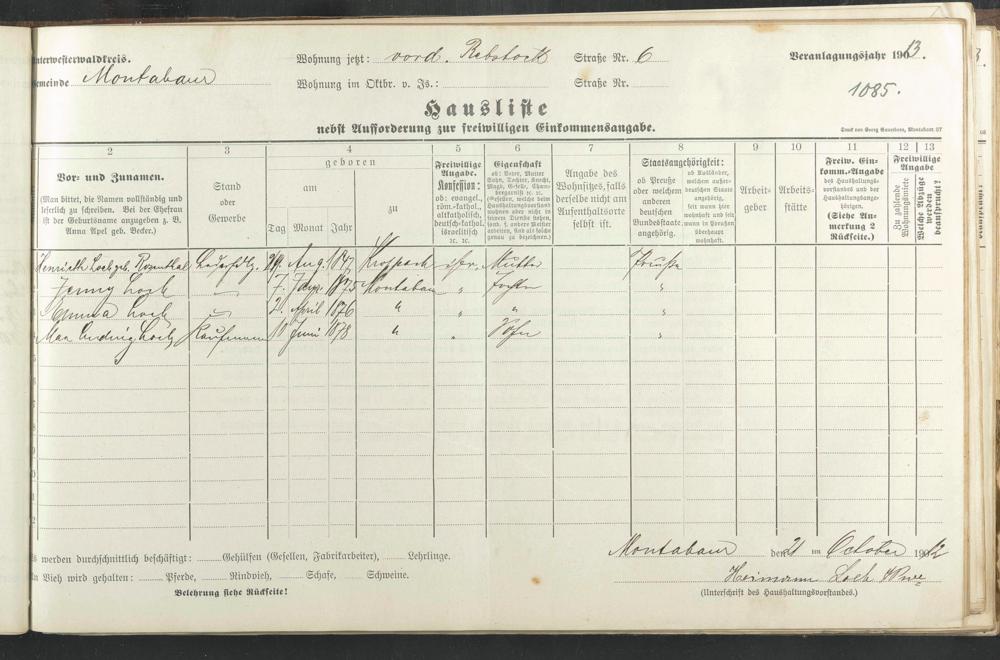 Unterwesterwaldkreis. Wohnung jetzt: vord. Rebstock Straße Nr. 6 Veranlagungsjahr 1913.
Gemeinde Montabaur Wohnung im Oktbr. v. Js.: Straße Nr. 1085.
Hausliste
nebst Aufforderung zur freiwilligen Einkommensangabe.
Druck von Georg Sauerborn, Montabaur 07
2 3 4 5 6 7 8 9 10 11 12 13
Vor- und Zunamen.
(Man bittet, die Namen vollständig und
leserlich zu schreiben. Bei der Ehefrau
ist der Geburtsname anzugeben z. B.
Anna Apel geb. Becker.)
Stand
oder
Gewerbe
geboren
am zu
Tag Monat Jahr
Freiwillige
Angabe.
Konfession:
ob: evangel.,
röm.-kathol.,
altkatholisch,
deutsch-kathol.
israelitisch,
ꝛc. ꝛc.
Eigenschaft
ob: Vater, Mutter
Sohn, Tochter, Knecht,
Magd, Geselle,
Angabe des
Wohnsitzes, falls
derselbe nicht am
Aufenthaltsorte
selbst ist.
Staatsangehörigkeit:
ob Preuße
oder welchem
anderen
deutschen
Bundesstaate
angehörig.
ob Ausländer,
welchem außer-
deutschen Staate
angehörig,
seit wann hier
wohnhaft und seit
wann in Preußen
überhaupt
wohnhaft.
Arbeit-
geber
Arbeits-
stätte
Freiw. Ein-
komm.-Angabe
des Haushaltungs-
vorstandes und der
Haushaltungsange-
hörigen.
(Siehe An-
merkung 2
Rückseite.)
Freiwillige
Angabe
Zu zahlende
Wohnungsmiete
Welche Abzüge
werden
beansprucht?
Henrieth Loeb geb. Rosenthal Lederhdlg. Aug. 1847 Kroppach isr. Mutter Preuße
Jenny Loeb 7. 1875 Montabaur " Tochter "
Emma Loeb 2. April 1876 " " " "
Max Ludwig Loeb Kaufmann 10 Juni 1878 " " Sohn "
Es werden durchschnittlich beschäftigt: Gehülfen (Gesellen, Fabrikarbeiter), Lehrlinge.
An Vieh wird gehalten: Pferde, Rindvieh, Schafe, Schweine.
Belehrung siehe Rückseite!
Montabaur den 21 im October 1912
Heimann Loeb Wwe
(Unterschrift des Haushaltungsvorstandes.)